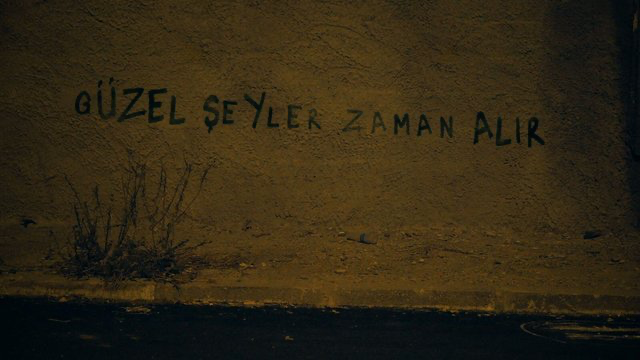 GÜZEL ŞEYLER ZAMAN ALIR